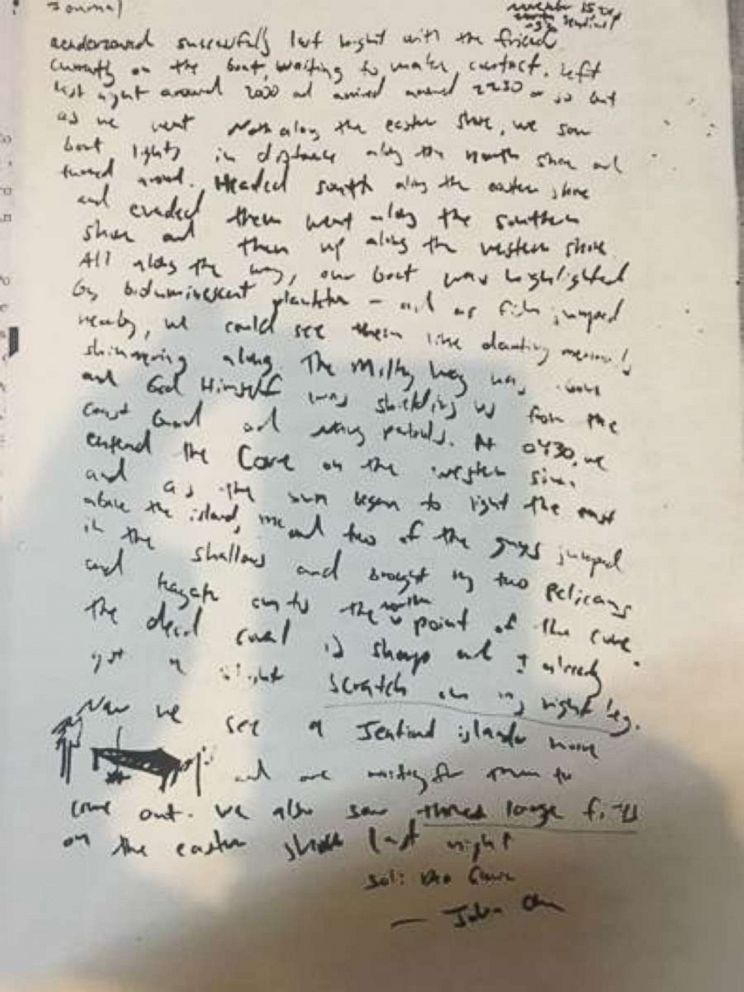 Journal
November 15
Sentinel
rendezvoused successfully last night with the friend
currently on the boat, waiting to make contact. Left
last night around 2000 and arrived around 2230 or so but
as we went North along the eastern shore, we saw
boat lights in distance along the north shore and
turned around. Headed south along the eastern shore
and evaded them went along the southern
shore and then up along the western shore.
All along the way, our boat was highlighted
by bioluminescent plankton – and as fish jumped
nearby, we could see them like darting mermaids
shimmering along. The Milky Way was above
and God Himself was shielding us from the
Coast Guard and patrols. At 0430, we
entered the Cove on the western side
and as the sun began to light the east
above the island, me and two of the guys jumped
in the shallows and brought my two pelicans
and kayak onto the north point of the cove.
The dead coral is sharp and I already
got a slight scratch on my right leg.
Now we see a Sentinel islander house
and are waiting for them to
come out. We also saw three large fires
on the eastern shore last night
Soli Deo Gloria
— John Chau